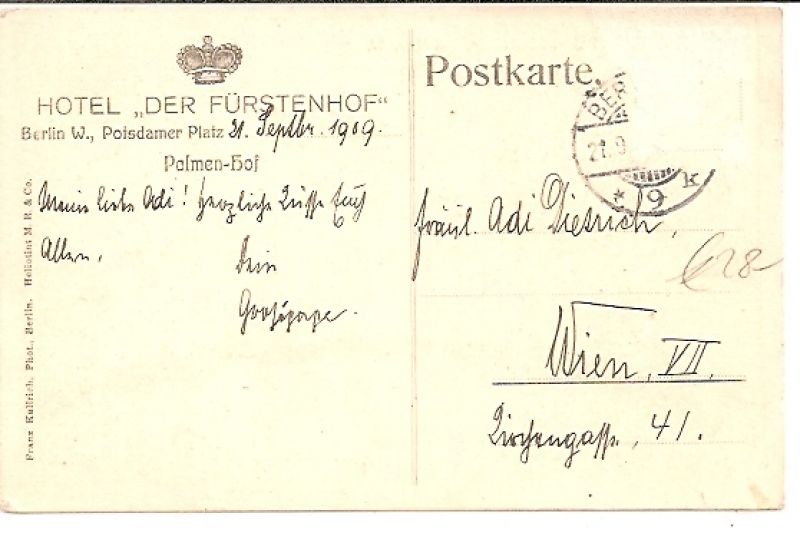 HOTEL „DER FÜRSTENHOF“
Berlin W., Potsdamer Platz 21. Septbr. 1909.
Palmen-Hof
Meine liebe Adi! Herzliche Küsse Euch
Allen.
Dein
Großpapa.
Franz Kullrich, Phot., Berlin. Heliotint M. R. & Co.
Postkarte.
BER
21.9
* 9 k
Fräul. Adi Dietrich,
628
Wien, VII,
Kirchengasse, 41.